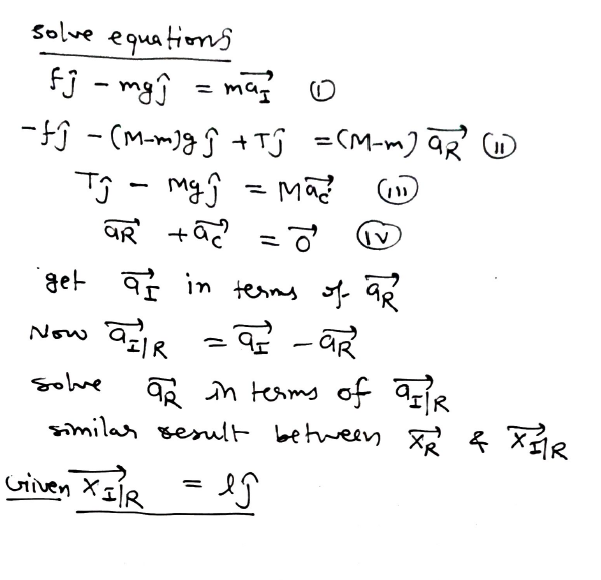 solve equations
fĵ - mgĵ = ma⃗_I (i)
-fĵ - (M-m)gĵ + Tĵ = (M-m) a⃗_R (ii)
Tĵ - Mgĵ = Ma⃗_c (iii)
a⃗_R + a⃗_c = 0⃗ (iv)
get a⃗_I in terms of a⃗_R
Now a⃗_I|R = a⃗_I - a⃗_R
solve a⃗_R in terms of a⃗_I|R
similar result between x⃗_R & x⃗_I|R
Given x⃗_I|R = lĵ